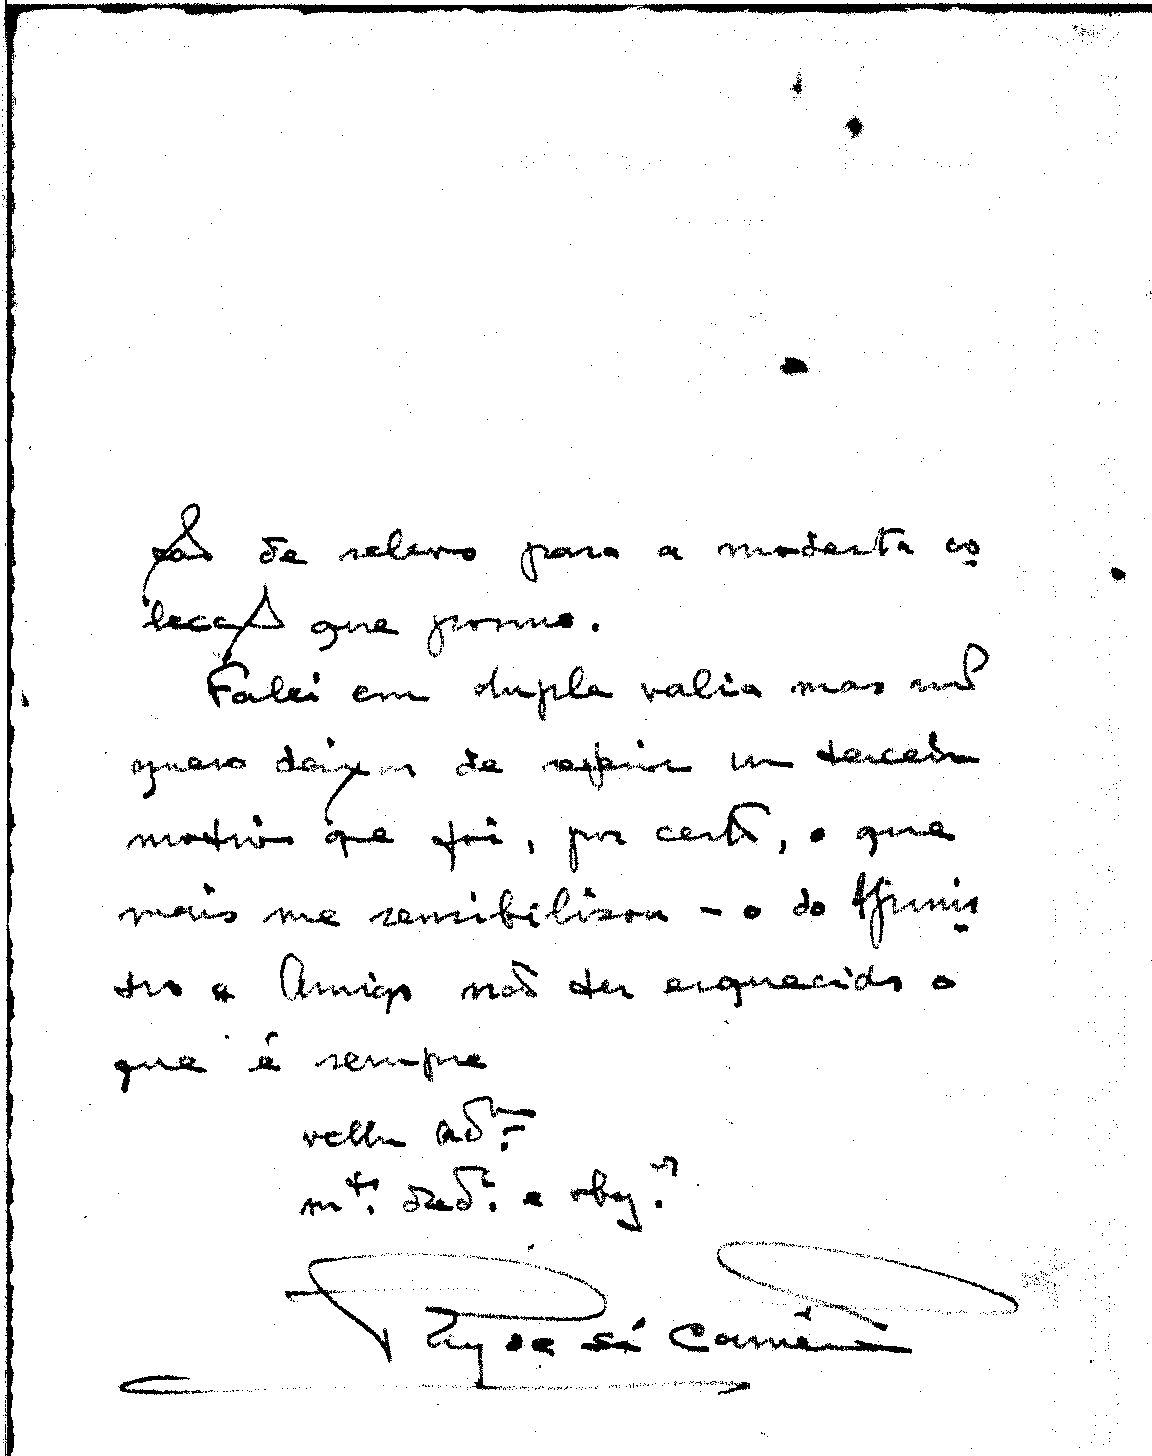 ção de relevo para a modesta co
lecção que possuo.
Falei em dupla valia mas não
quero deixar de referir um terceiro
motivo que foi, por certo, o que
mais me sensibilisou - o do Minis
tro e Amigo não ter esquecido o
que é sempre
velho adm.
mto. dedo. e obrgo.
Ruy de Sá Carneiro